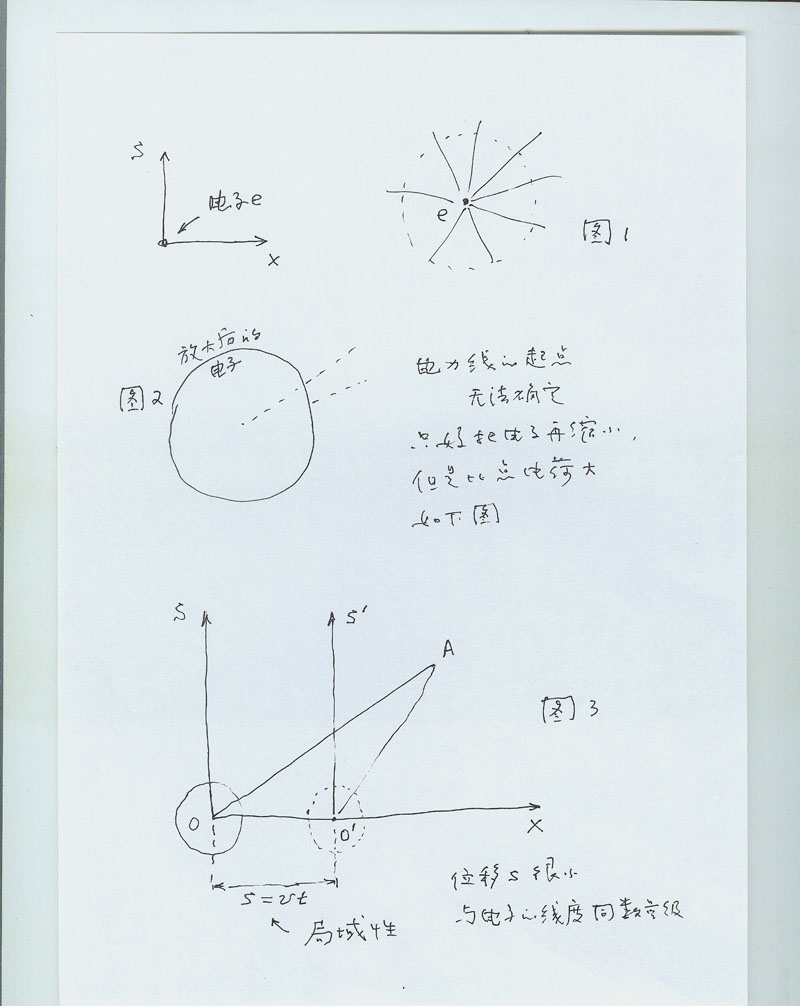 S
电子e
X
e
图1
放大后的
电子
图2
电力线的起点
无法确定
只好把电子再缩小,
但是比点电荷大
如下图
S
S'
A
图3
O
O'
X
S=vt
局域性
位移s很小
与电子的线度同数量级